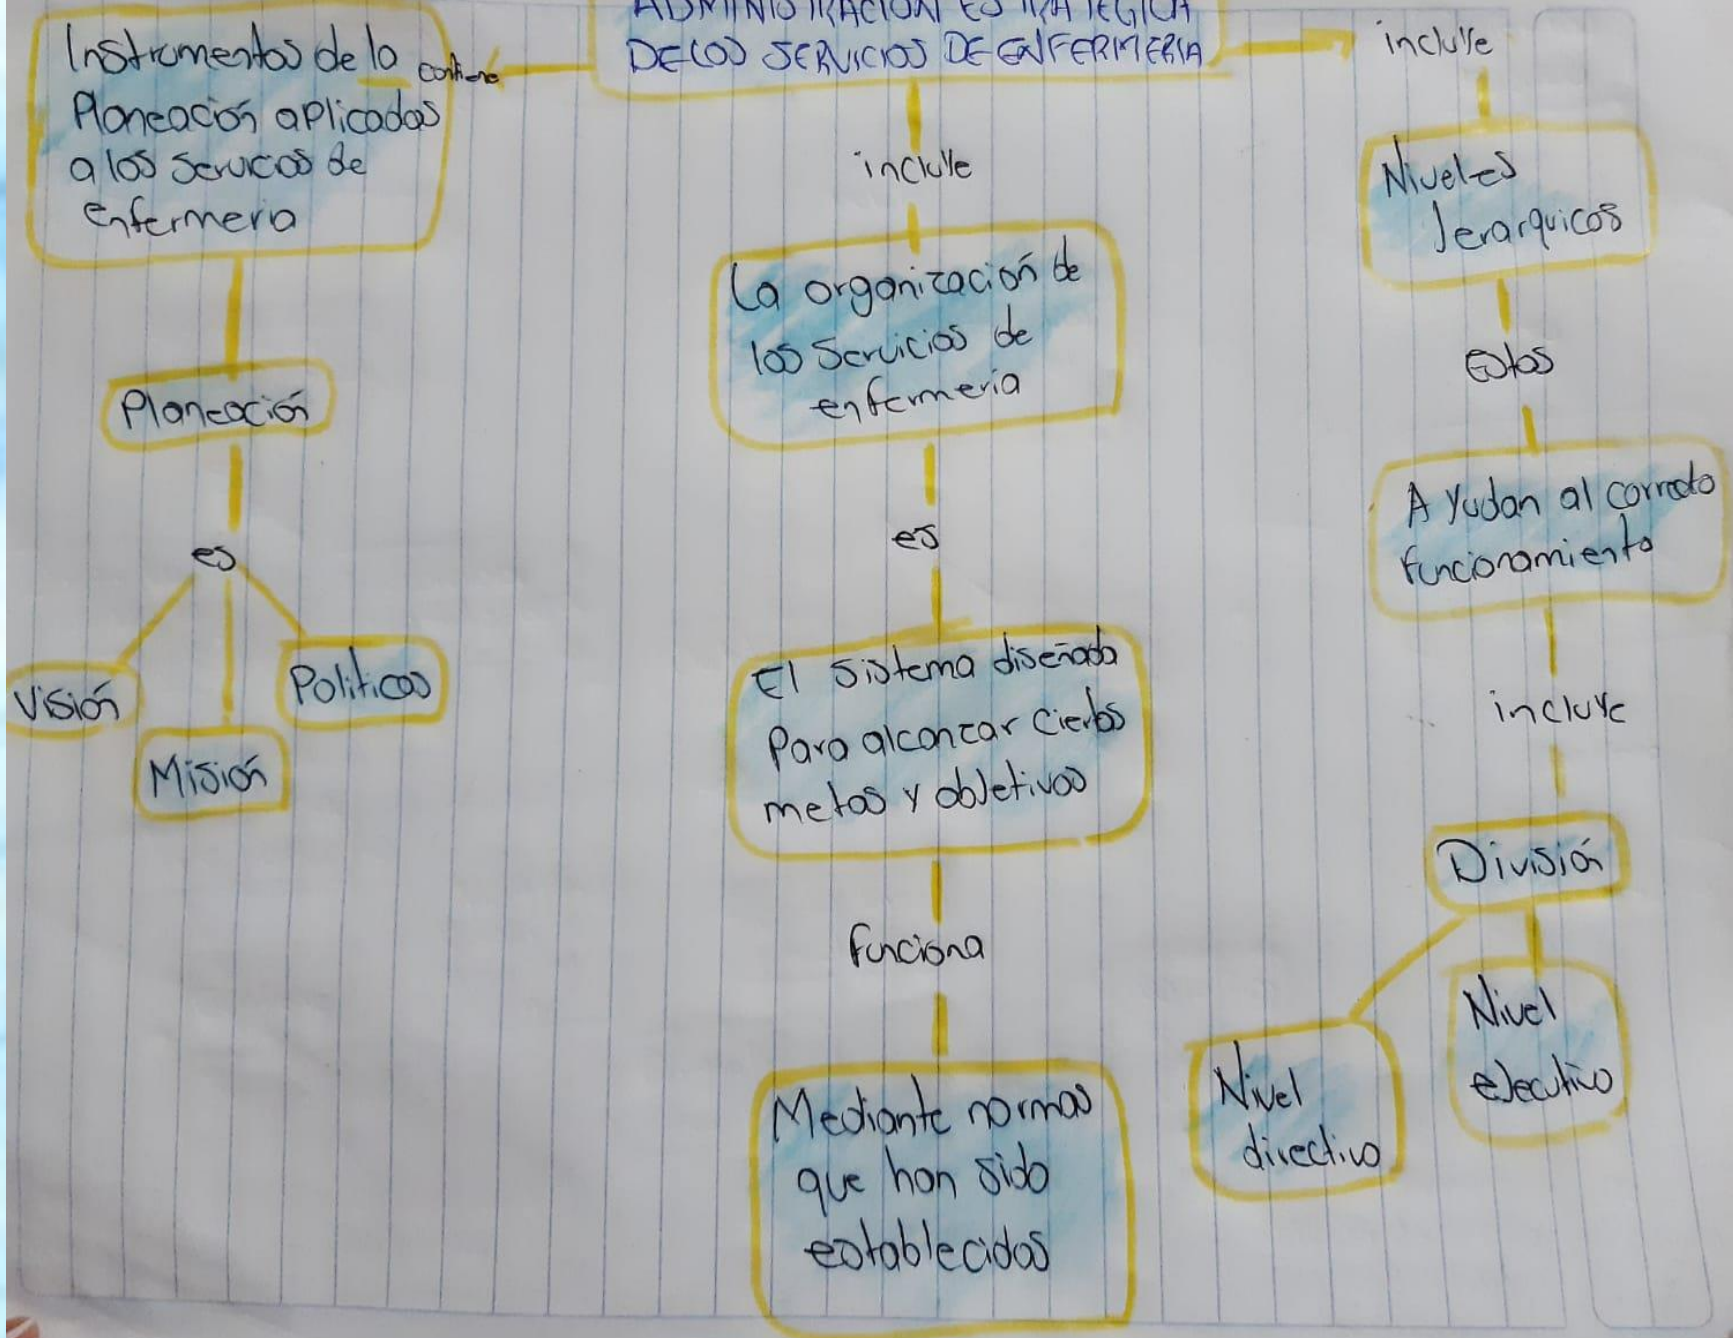 ADMINISTRACIÓN ESTRATEGICA
DE LOS SERVICIOS DE ENFERMERIA
contiene
Instrumentos de la
Planeación aplicadas
a los servicos de
enfermeria
Planeación
es
Visión
Misión
Politicas
incluye
La organización de
los Servicios de
enfermeria
es
El sistema diseñado
Para alcanzar ciertos
metas y objetivos
funciona
Mediante normas
que han sido
establecidas
incluye
Niveles
Jerarquicos
Estos
Ayudan al correcto
funcionamiento
incluye
División
Nivel
directivo
Nivel
ejecutivo